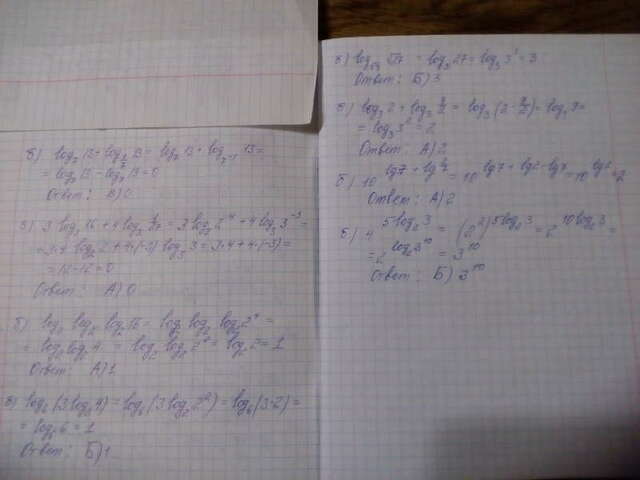 б) log₇ 13 + log_{1/7} 13 = log₇ 13 + log_{7⁻¹} 13 =
= log₇ 13 - log₇ 13 = 0
Ответ: В) 0
3 log₂ 16 + 4 log₃ 1/27 = 3 log₂ 2⁴ + 4 log₃ 3⁻³ =
= 3·4 log₂ 2 + 4·(-3) log₃ 3 = 3·4 + 4·(-3) =
= 12 - 12 = 0
Ответ: А) 0
б) log₂ log₂ log₂ 16 = log₂ log₂ log₂ 2⁴ =
= log₂ log₂ 4 = log₂ log₂ 2² = log₂ 2 = 1
Ответ: А) 1
в) log₆ (3 log₂ 4) = log₆ (3 log₂ 2²) = log₆ (3·2) =
= log₆ 6 = 1
Ответ: Б) 1
√27 = log₃ 27 = log₃ 3³ = 3
Ответ: Б) 3
log₃ 2 + log₃ 9/2 = log₃ (2·9/2) = log₃ 9 =
= log₃ 3² = 2
Ответ: А) 2
б) 10^{lg7 + lg 2/7} = 10^{lg7 + lg2 - lg7} = 10^{lg2} = 2
Ответ: А) 2
4^{5log₂3} = (2²)^{5log₂3} = 2^{10log₂3} =
= 2^{log₂3¹⁰} = 3¹⁰
Ответ: Б) 3¹⁰